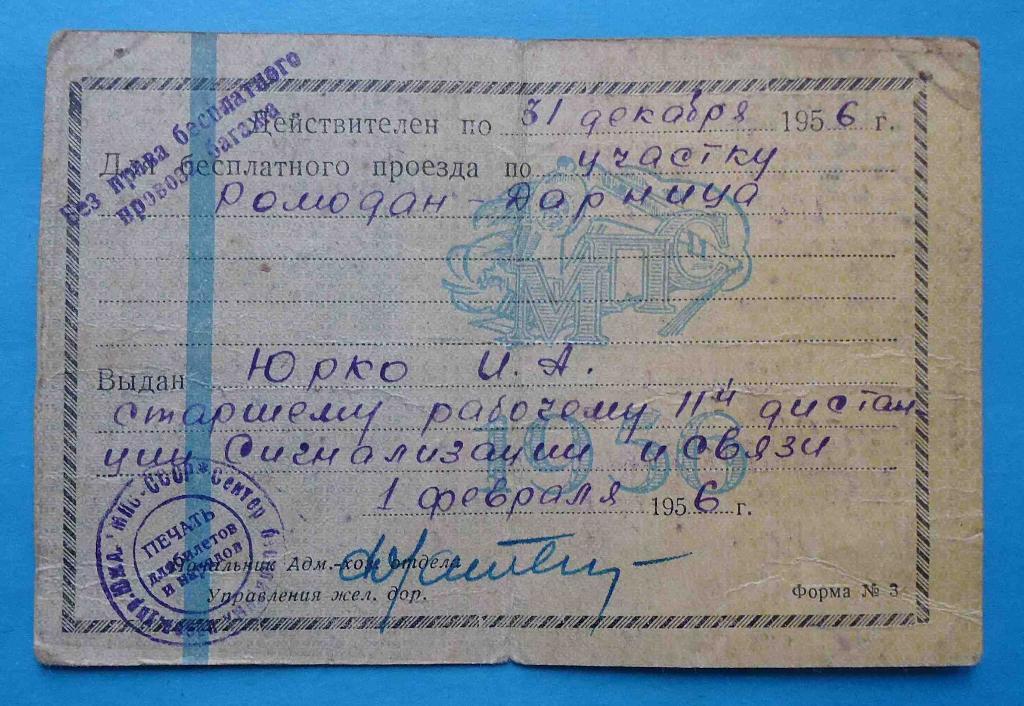 Без права бесплатного
провоза багажа
Действителен по 31 декабря 1956 г.
Для бесплатного проезда по участку
Ромодан - Дарница
МПС
Выдан Юрко И. А.
старшему рабочему 11й дистан
ции Сигнализации и связи
1956
1 февраля 1956 г.
МПС-СССР * Сектор
ПЕЧАТЬ
для билетов
и нарядов
Начальник Адм.-хоз. отдела
Управления жел. дор.
Форма № 3